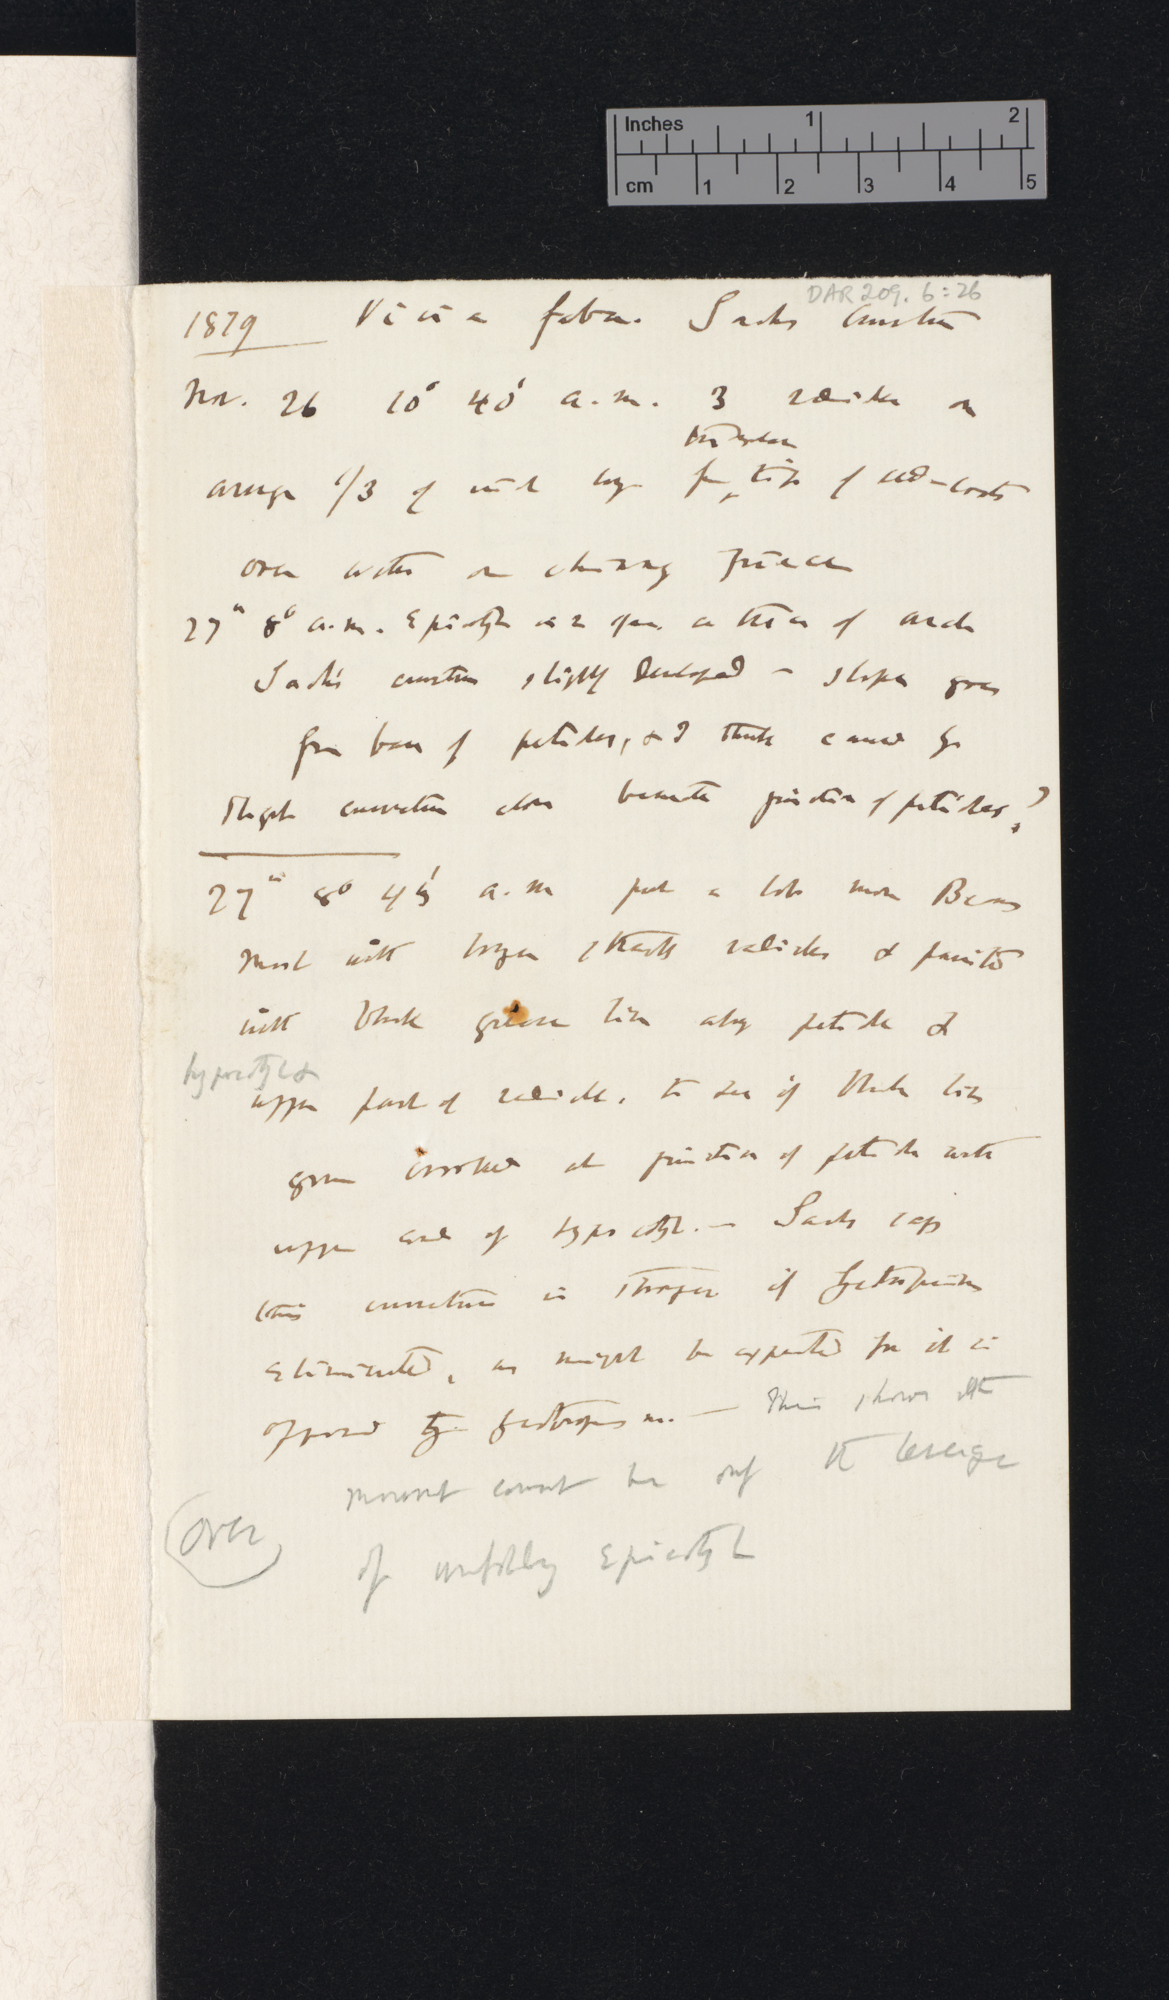 Inches 1 2
cm 1 2 3 4 5
DAR 209. 6:26
1879 Vicia faba. Sachs curvature
Nov. 26 10° 40' a.m. 3 radicles on
average 1/3 of inch long from tips of seed-coats
over water on chimney piece
27th 8° a.m. Epicotyl
Sachs' curvature slightly developed — slope goes
from base of petioles, & I think caused by
slight curvature close beneath junction of petioles?
27th 8° 45' a.m put a lot more Beans
most with longer straight radicles & painted
with black grease line along petiole &
hypocotyl &
upper part of radicle, to see if black line
grew crooked at junction of petiole with
upper end of hypocotyl. — Sachs says
this curvature is stronger if Geotropism
eliminated, as might be expected for it is
opposed by geotropism. — This shows that
movement cannot be only the leverage
(over) of unfolding Epicotyl